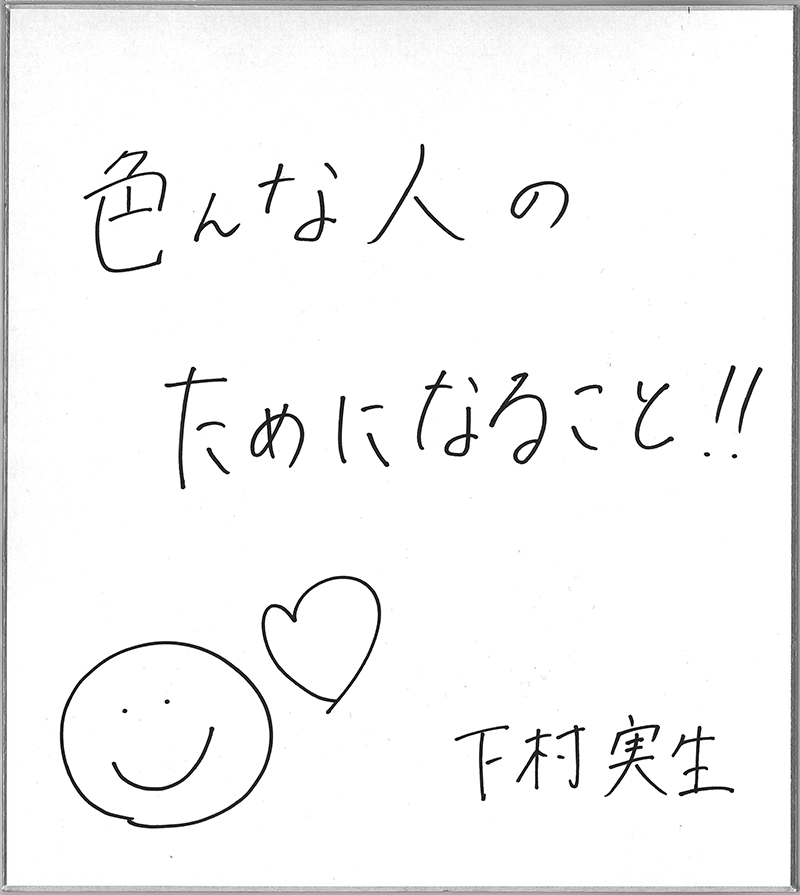 色んな人の
ためになること!!
下村実生